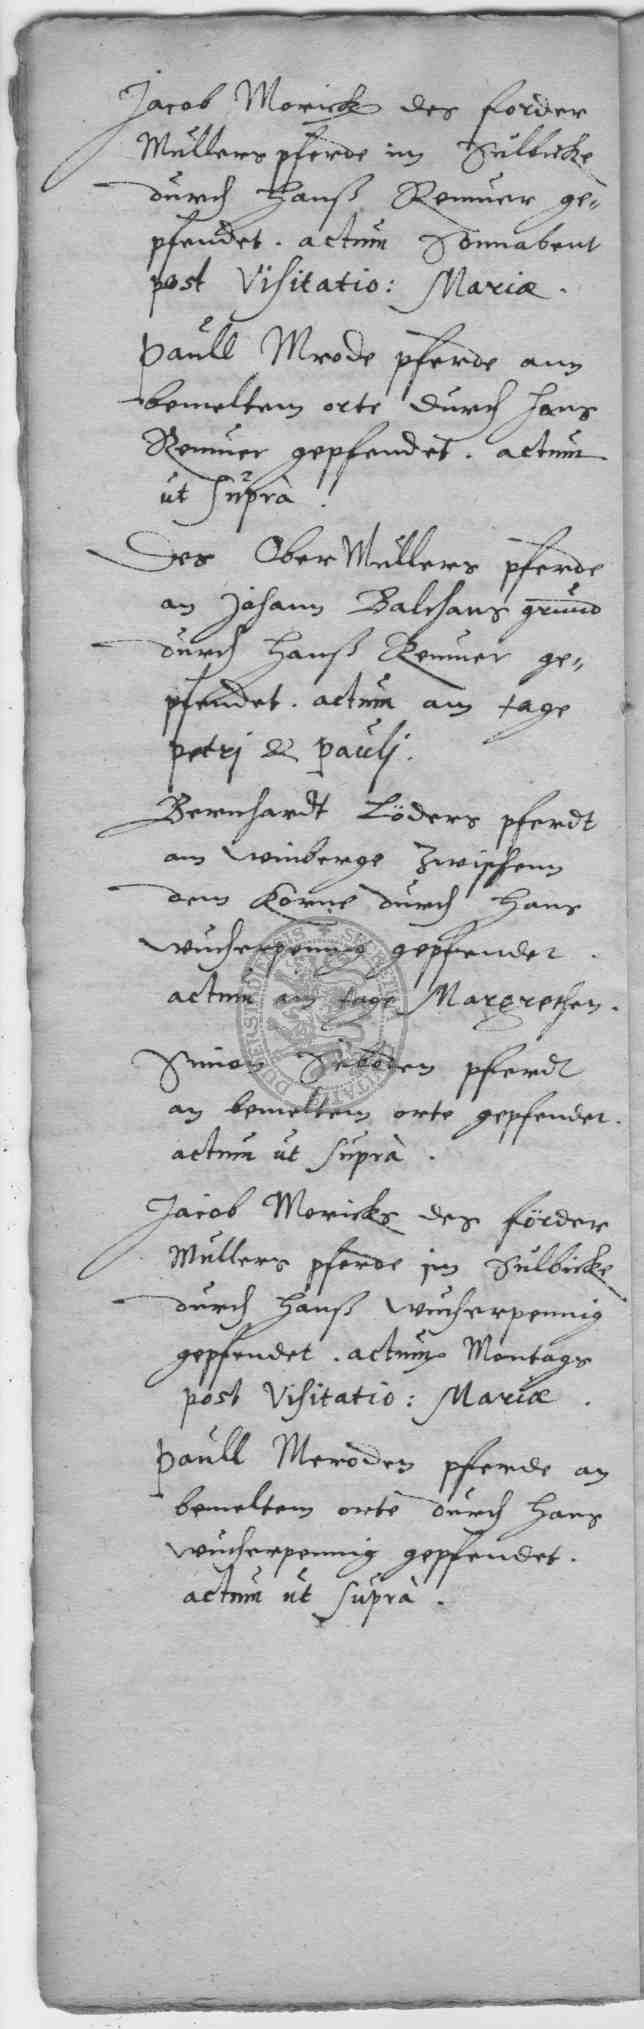 Jacob Morickes des forder
Müllers pferde im Sülbicke
durch Hanß Remmer ge„
pfendet. actum Sonnabent
post Visitatio: Mariæ.
Paull Mrode pferde ann
bemeltem orte durch Hans
Remmer gepfendet. actum
ut suprà.
Des Ober Müllers pferde
an Johann Balthars grund
durch Hanß Remmer ge„
pfendet. actum am tage
petrj & paulj.
Bernhardt Löders pferdt
am winberge Zwischenn
dem Korne durch Hans
wucherpennig gepfendet.
actum am tage Margrethen.
Simon Seboden pferdt
an bemeltem orte gepfendet.
actum ut suprà.
Jacob Moricks des förder
Müllers pferde jm Sülbicke
durch Hanß wucherpennig
gepfendet. actum Montags
post Visitatio: Mariæ.
Paull Meroden pferde an
bemeltem orte durch Hans
wucherpennig gepfendet.
actum ut suprà.